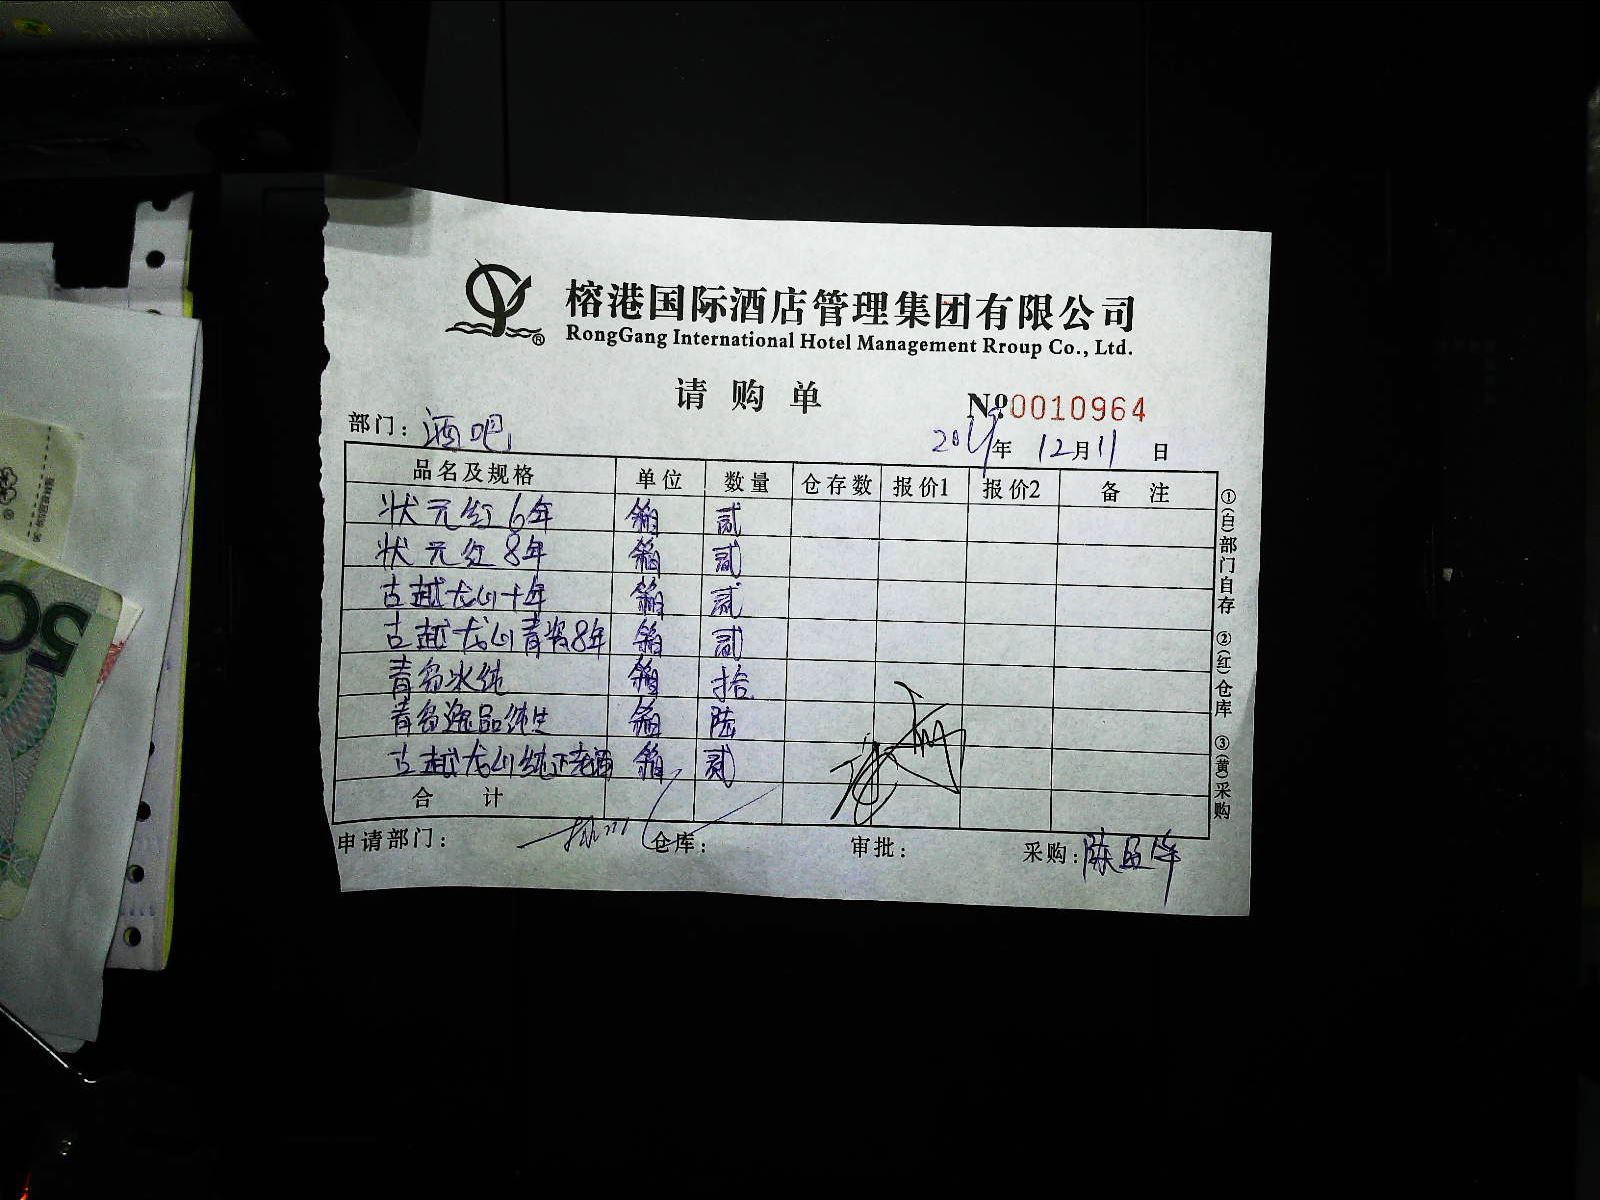 榕港国际酒店管理集团有限公司
RongGang International Hotel Management Rroup Co., Ltd.
请购单
№ 0010964
部门: 酒吧
年 12月11日
品名及规格 单位 数量 仓存数 报价1 报价2 备注
状元红6年 箱 贰
状元红8年 箱 贰
古越龙山十年 箱 贰
古越龙山青瓷8年 箱 贰
青岛冰纯 箱 拾
青岛逸品纯生 箱 陆
古越龙山纯正老酒 箱 贰
合计
申请部门: 仓库: 审批: 采购:
①(白)部门自存 ②(红)仓库 ③(黄)采购
50